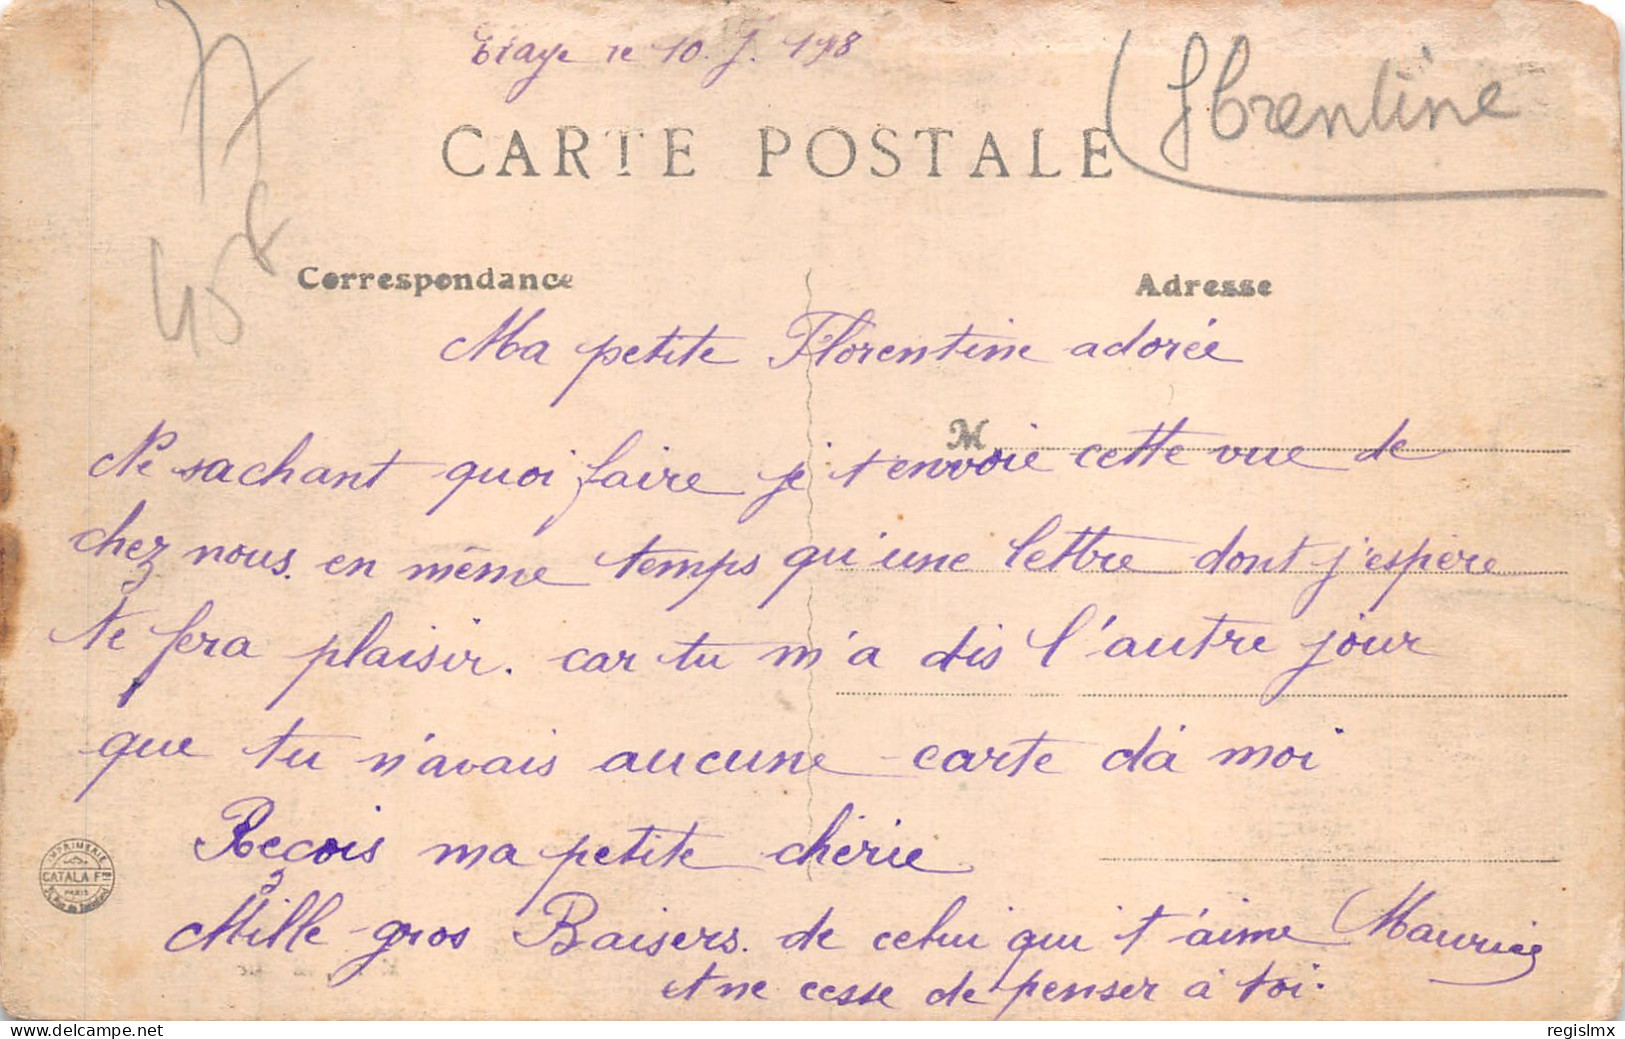 le 10. J. 1918
77
Florentine
CARTE POSTALE
458
Correspondance
Adresse
Ma petite Florentine adorée
M
Ne sachant quoi faire je t'envoie cette vue de
chez nous. en même temps qu'une lettre dont j'espère
te fera plaisir. car tu m'a dis l'autre jour
que tu n'avais aucune carte d'à moi
Reçois ma petite chérie
IMPRIMERIE
CATALA Fres
PARIS
Mille gros Baisers. de celui qui t'aime Maurice
et ne cesse de penser à toi.
delcampe.net
regislmx